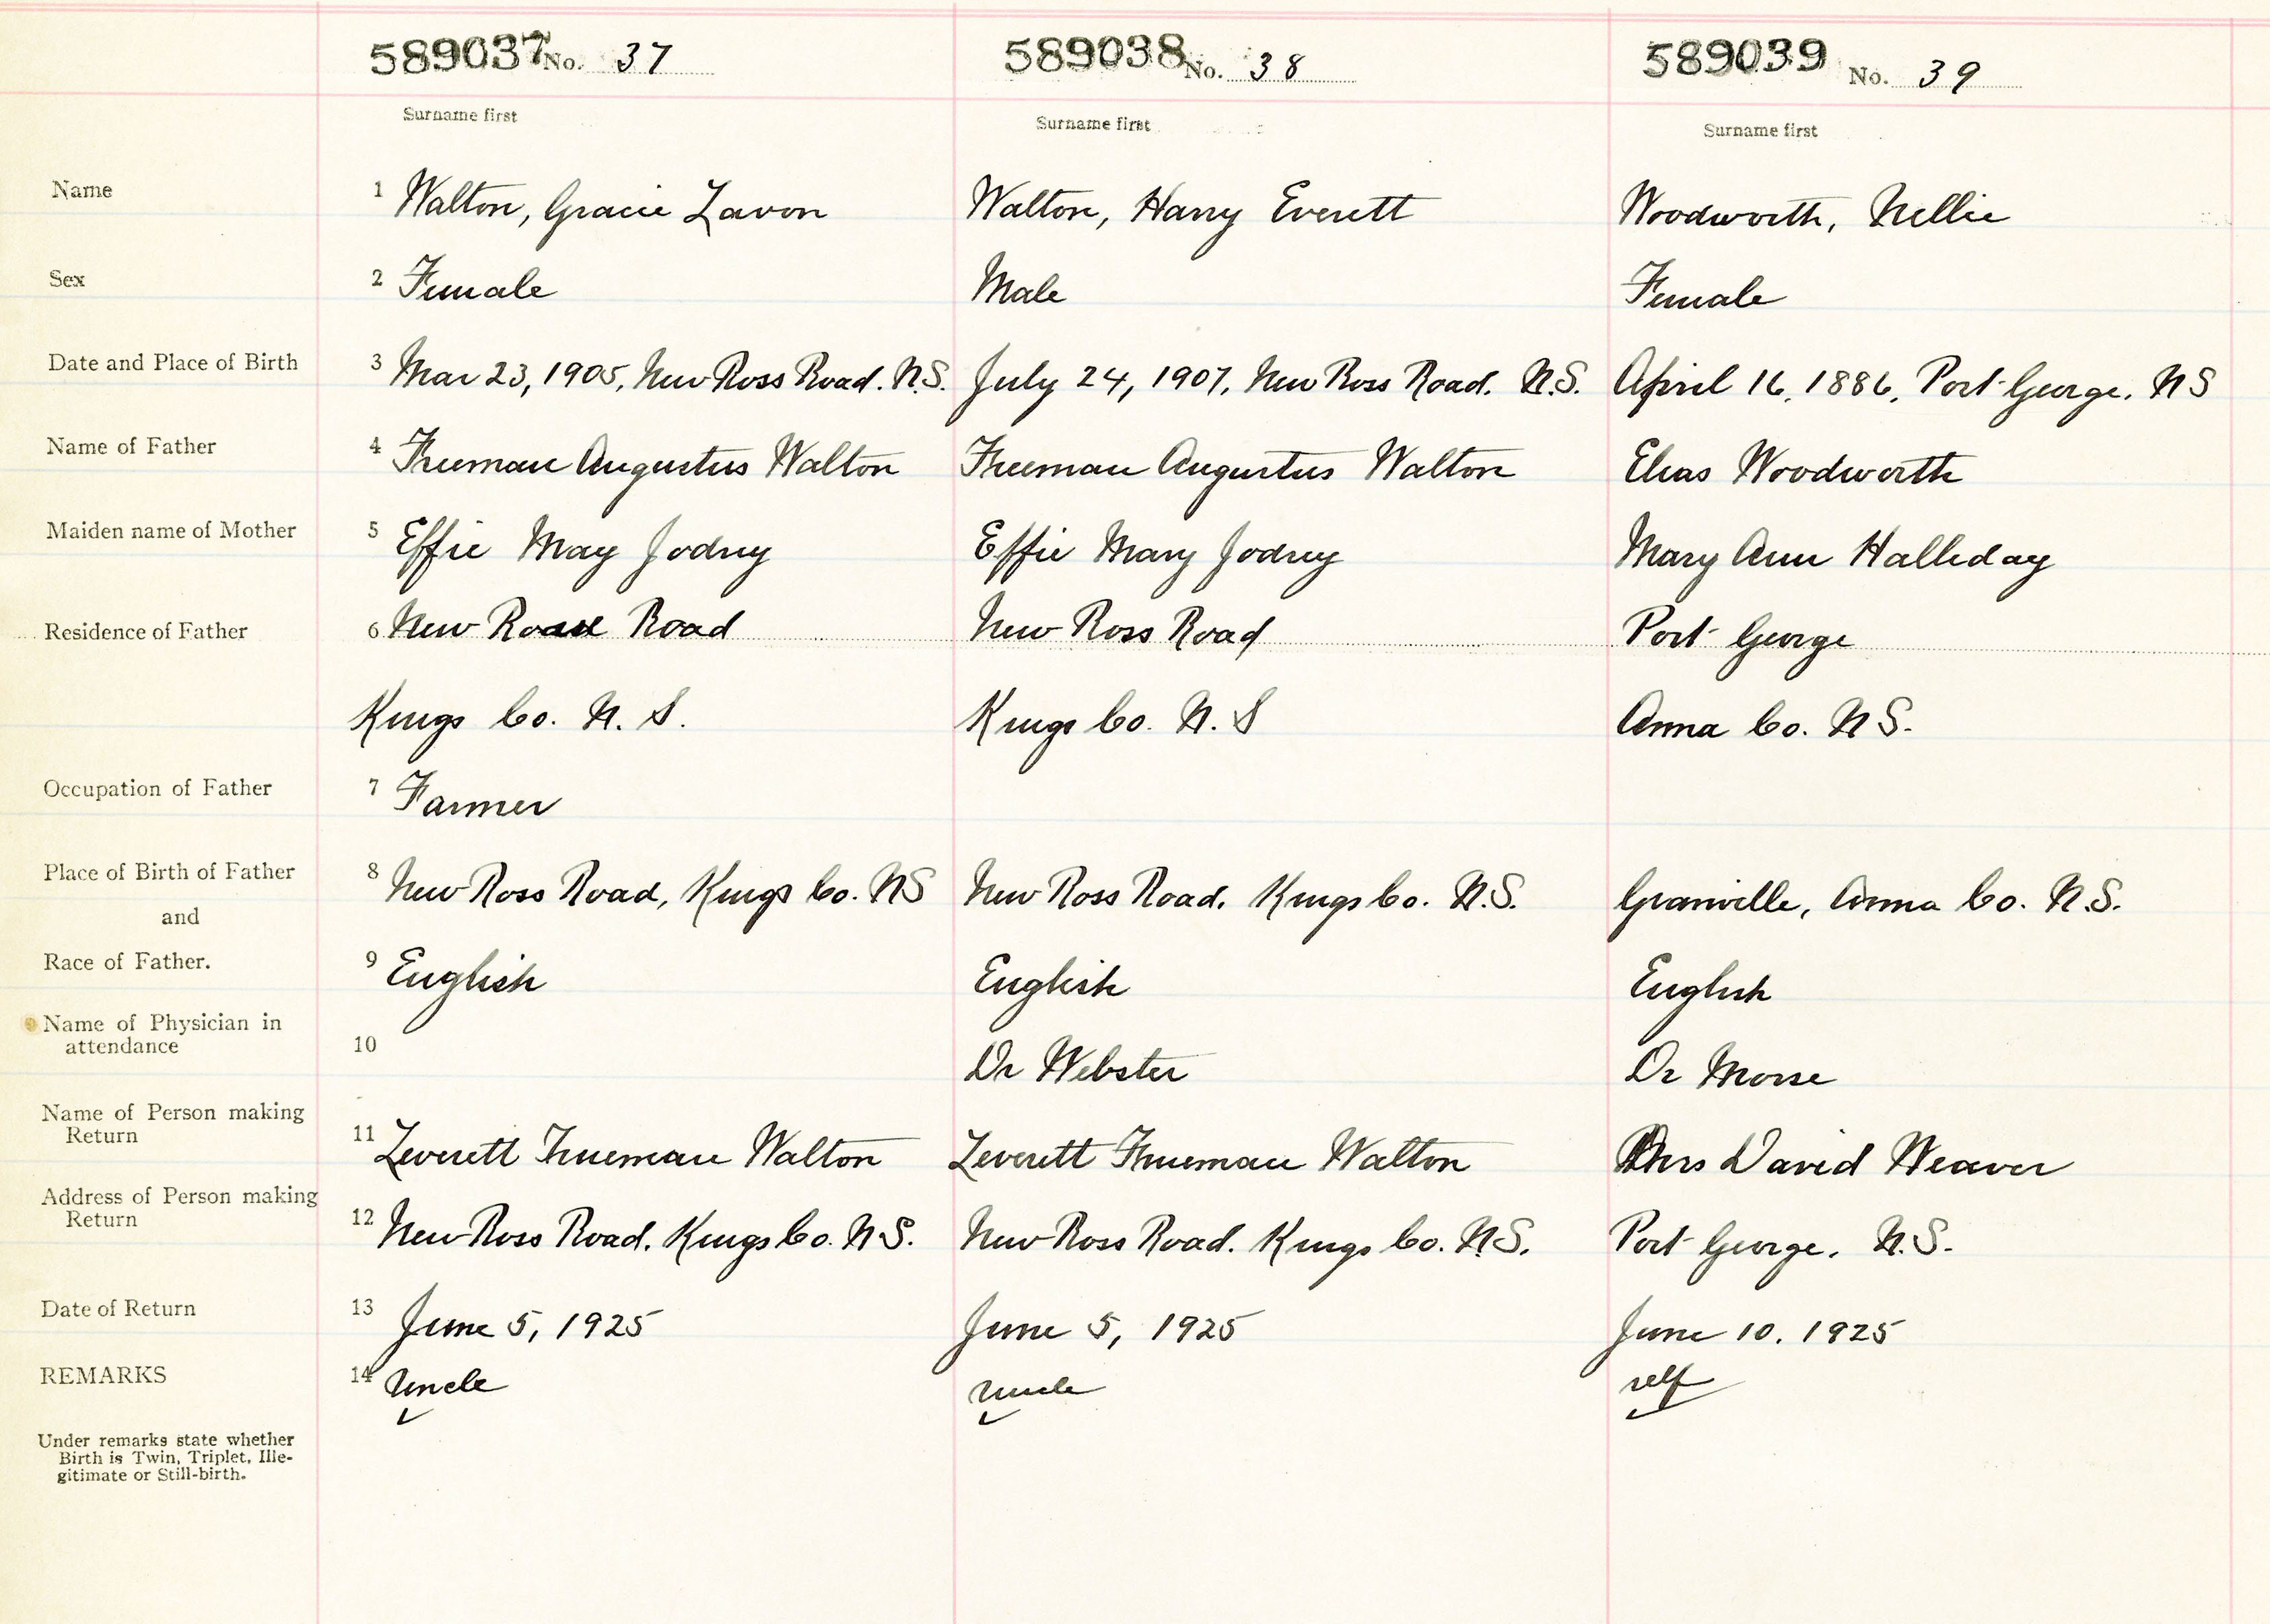 589037 No. 37 589038 No. 38 589039 No. 39
Surname first Surname first Surname first
Name 1 Walton, Gracie Zavon Walton, Harry Everett Woodworth, Nellie
Sex 2 Female Male Female
Date and Place of Birth 3 Mar 23, 1905, New Ross Road. N.S. July 24, 1907, New Ross Road. N.S. April 16, 1886, Port George. NS
Name of Father 4 Freeman Augustus Walton Freeman Augustus Walton Elias Woodworth
Maiden name of Mother 5 Effie May Jodrey Effie Mary Jodrey Mary Ann Halliday
Residence of Father 6 New Road New Ross Road Port George
Kings Co. N. S. Kings Co. N. S Anna Co. N S.
Occupation of Father 7 Farmer
Place of Birth of Father 8 New Ross Road, Kings Co. NS New Ross Road. Kings Co. N.S. Granville, Anna Co. N.S.
and
Race of Father. 9 English English English
Name of Physician in
attendance 10 Dr Webster Dr Morse
Name of Person making
Return 11 Leverett Freeman Walton Leverett Freeman Walton Mrs David Weaver
Address of Person making
Return 12 New Ross Road. Kings Co. N.S. New Ross Road. Kings Co. N.S. Port George. N.S.
Date of Return 13 June 5, 1925 June 5, 1925 June 10. 1925
REMARKS 14 Uncle uncle self
Under remarks state whether
Birth is Twin, Triplet, Ille-
gitimate or Still-birth.